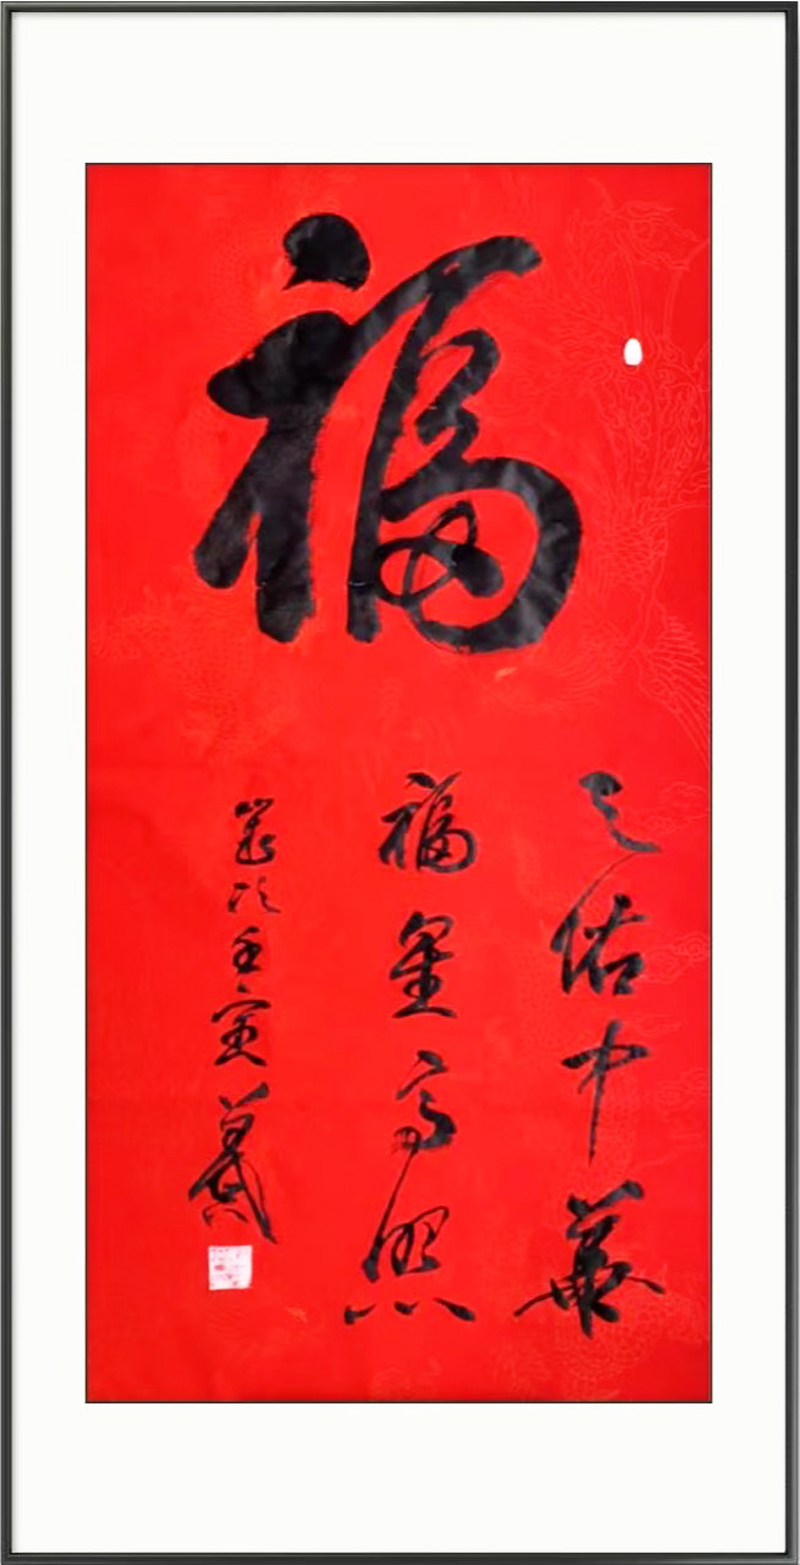 福
天佑中華
福星高照
歲次壬寅